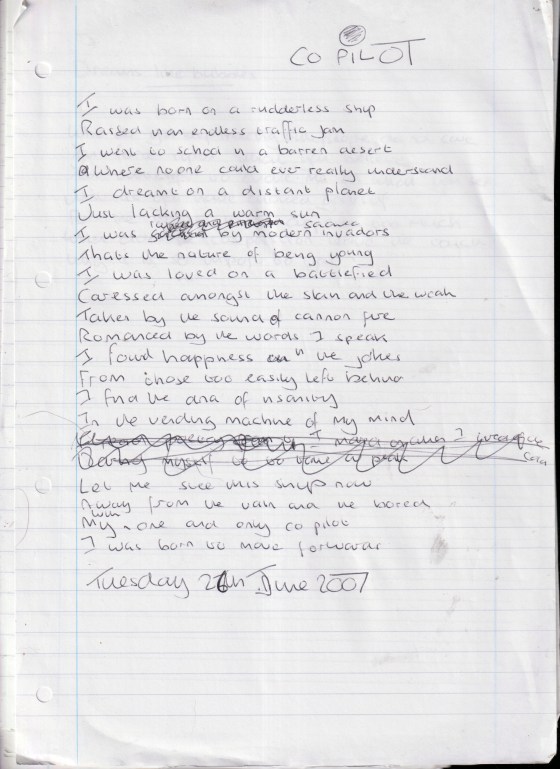 CO PILOT
I was born on a rudderless ship
Raised in an endless traffic jam
I went to school in a barren desert
Where no one could ever really understand
I dreamt on a distant planet
Just lacking a warm sun
I was by modern invadors
Thats the nature of being young
I was loved on a battlefied
Caressed amongst the slain and the weak
Taken by the sound of cannon fire
Romanced by the words I speak
I found happiness in the jokes
From those too easily left behind
I find the of insanity
In the vending machine of my mind
Let me steer this ship now
Away from the vain and the bored
With
My one and only co pilot
I was born to move forwards
Tuesday 26th June 2007